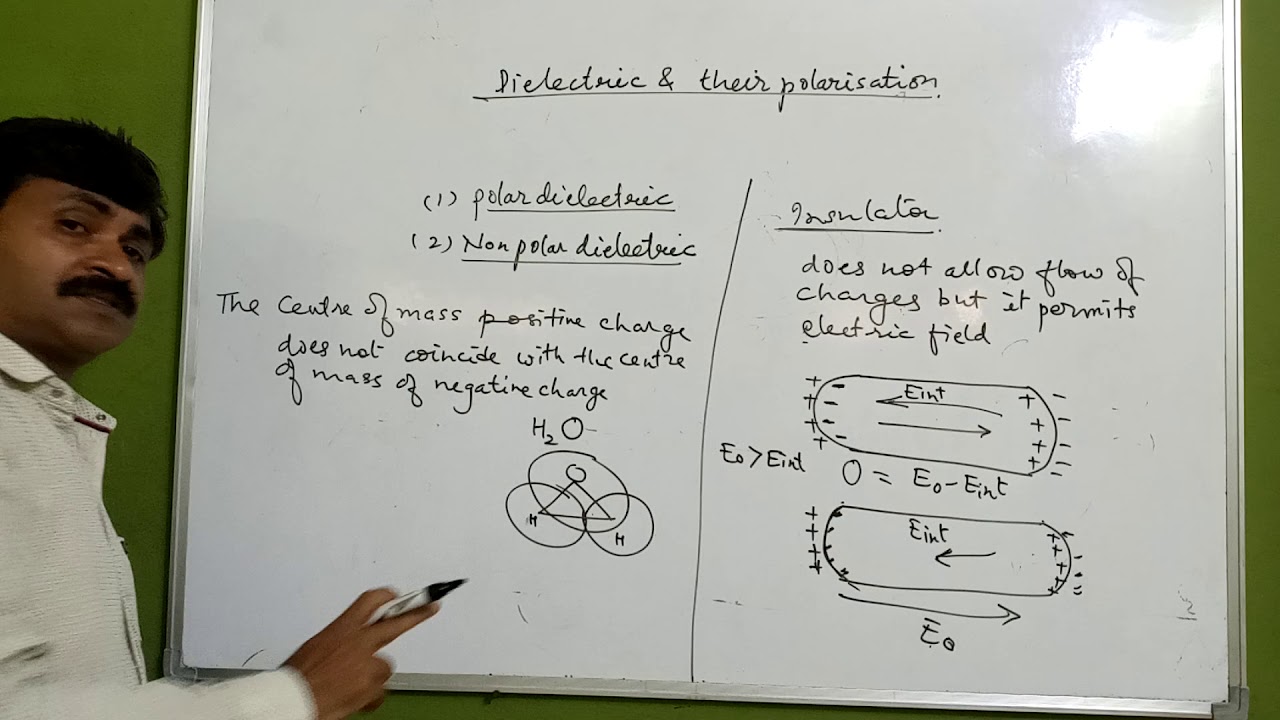 Dielectric & their polarisation.
(1) polar dielectric
(2) Non polar dielectric
The centre of mass positive charge
does not coincide with the centre
of mass of negative charge
H2O
O
H
H
Insulator.
does not allow flow of
charges but it permits
electric field
+ - Eint + -
+ - + -
+ - + -
+ - + -
E0 > Eint
0 = E0 - Eint
+ - Eint + -
+ - + -
+ - + -
+ - + -
E0